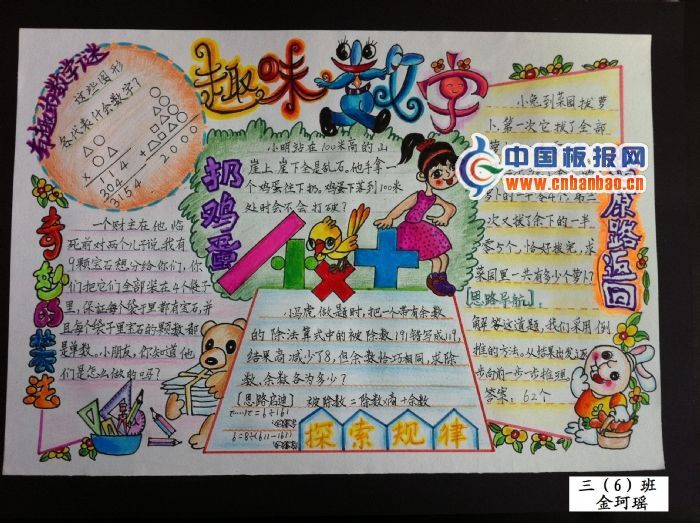 趣味数学
有趣的数学谜
这些图形
各代表什会数字？
△○
×△○
114
304
3154
○
△○
□△○
+△□△○
2000
扔鸡蛋
小明站在100米高的山
崖上,崖下全是乱石。他手拿一
个鸡蛋往下扔。鸡蛋下落到100米
处时会不会打破？
奇妙的装法
一个财主在他临
死前对两个儿子说,我有
9颗宝石想分给你们,你
们把它们全部装在4个袋子
里,保证每个袋子里都有宝石,并
且每个袋子里宝石的颗数都
是单数。小朋友,你知道他
们是怎么做的吗？
小马虎做题时,把一个带有余数
的除法算式中的被除数191错写成119,
结果商减少了8,但余数恰巧相同,求除
数、余数各为多少？
[思路启迪] 被除数=除数×商+余数
探索规律
原路返回
小兔到菜园拔萝
卜,第一次它拔了全部
次又拔了余下的一半
零5个,恰好拔完,求
菜园里一共有多少个萝卜？
[思路导航]
解答这道题,我们采用倒
推的方法。从结果出发逐
步向前一步一步推理。
答案:62个
中国板报网
www.cnbanbao.cn
三（6）班
金珂瑶